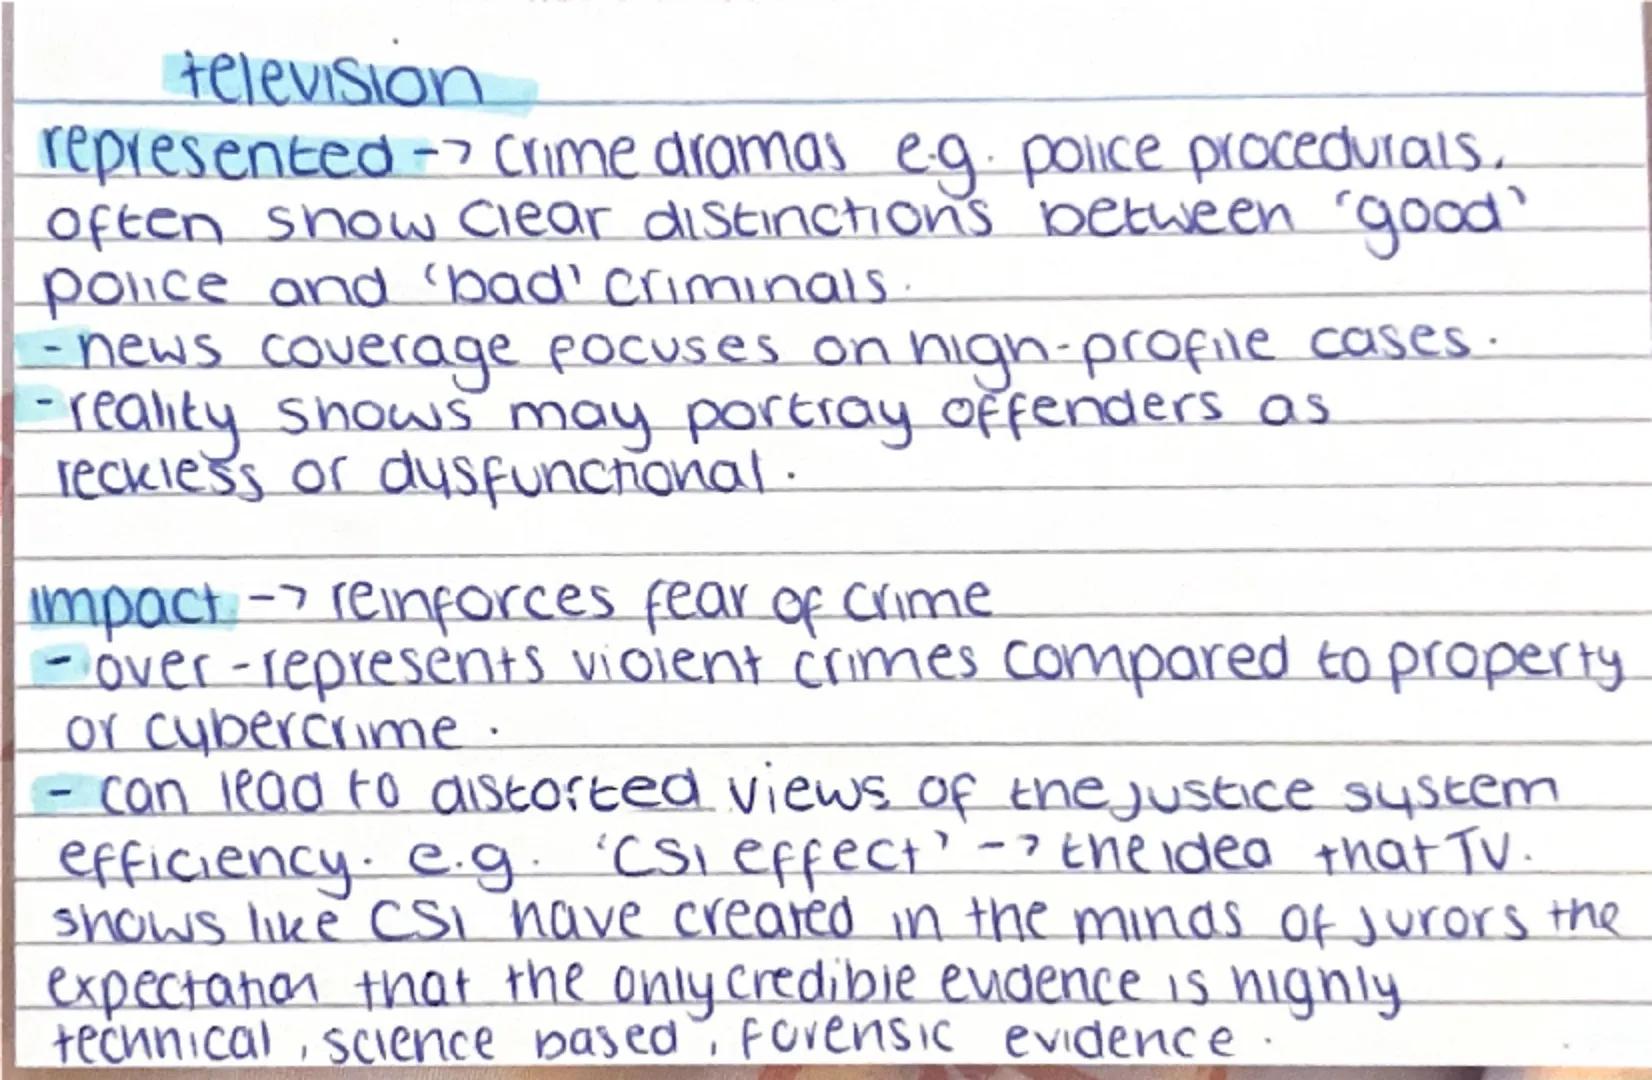 television
represented -> crime dramas e.g. police procedurals.
often show clear distinctions between 'good'
police and 'bad' criminals.
- news coverage focuses on high-profile cases.
- reality shows may portray offenders as
reckless or dysfunctional.
impact -> reinforces fear of crime
- over-represents violent crimes compared to property
or cybercrime.
- can lead to distorted views of the justice system
efficiency. e.g. 'CSI effect' -> the idea that TV.
shows like CSI have created in the minds of jurors the
expectation that the only credible evidence is highly
technical, science based, forensic evidence.